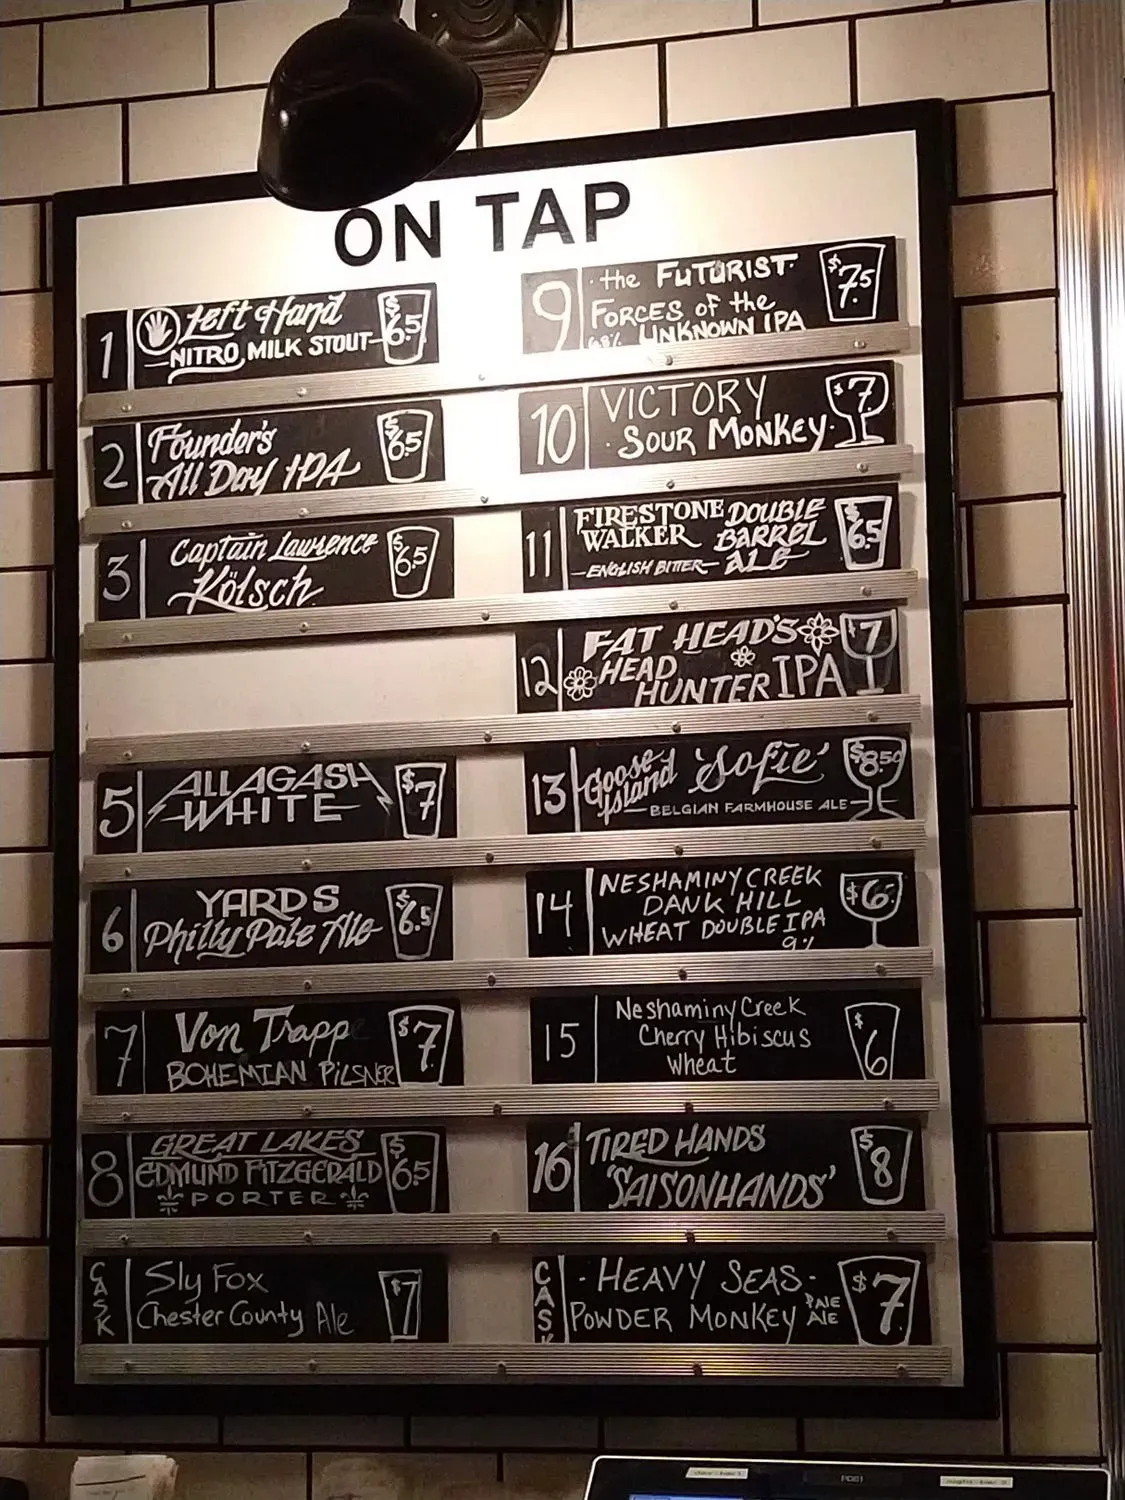 ON TAP
1
Left Hand
NITRO MILK STOUT
$6.5
2
Founder's
All Day IPA
$6.5
3
Captain Lawrence
Kölsch
$6.5
5
ALLAGASH
WHITE
$7
6
YARDS
Philly Pale Ale
$6.5
7
Von Trapp
BOHEMIAN PILSNER
$7
8
GREAT LAKES
EDMUND FITZGERALD
PORTER
$6.5
CASK
Sly Fox
Chester County Ale
$7
9
the FUTURIST
FORCES of the
UNKNOWN IPA
$7.5
10
VICTORY
SOUR MONKEY
$7
11
FIRESTONE
WALKER
DOUBLE
BARREL
ALE
ENGLISH BITTER
$6.5
12
FAT HEAD'S
HEAD
HUNTER IPA
$7
13
Goose
Island
'Sofie'
BELGIAN FARMHOUSE ALE
$8.50
14
NESHAMINY CREEK
DANK HILL
WHEAT DOUBLE IPA
9%
$6
15
Neshaminy Creek
Cherry Hibiscus
Wheat
$6
16
TIRED HANDS
'SAISONHANDS'
$8
CASK
HEAVY SEAS
POWDER MONKEY PALE ALE
$7